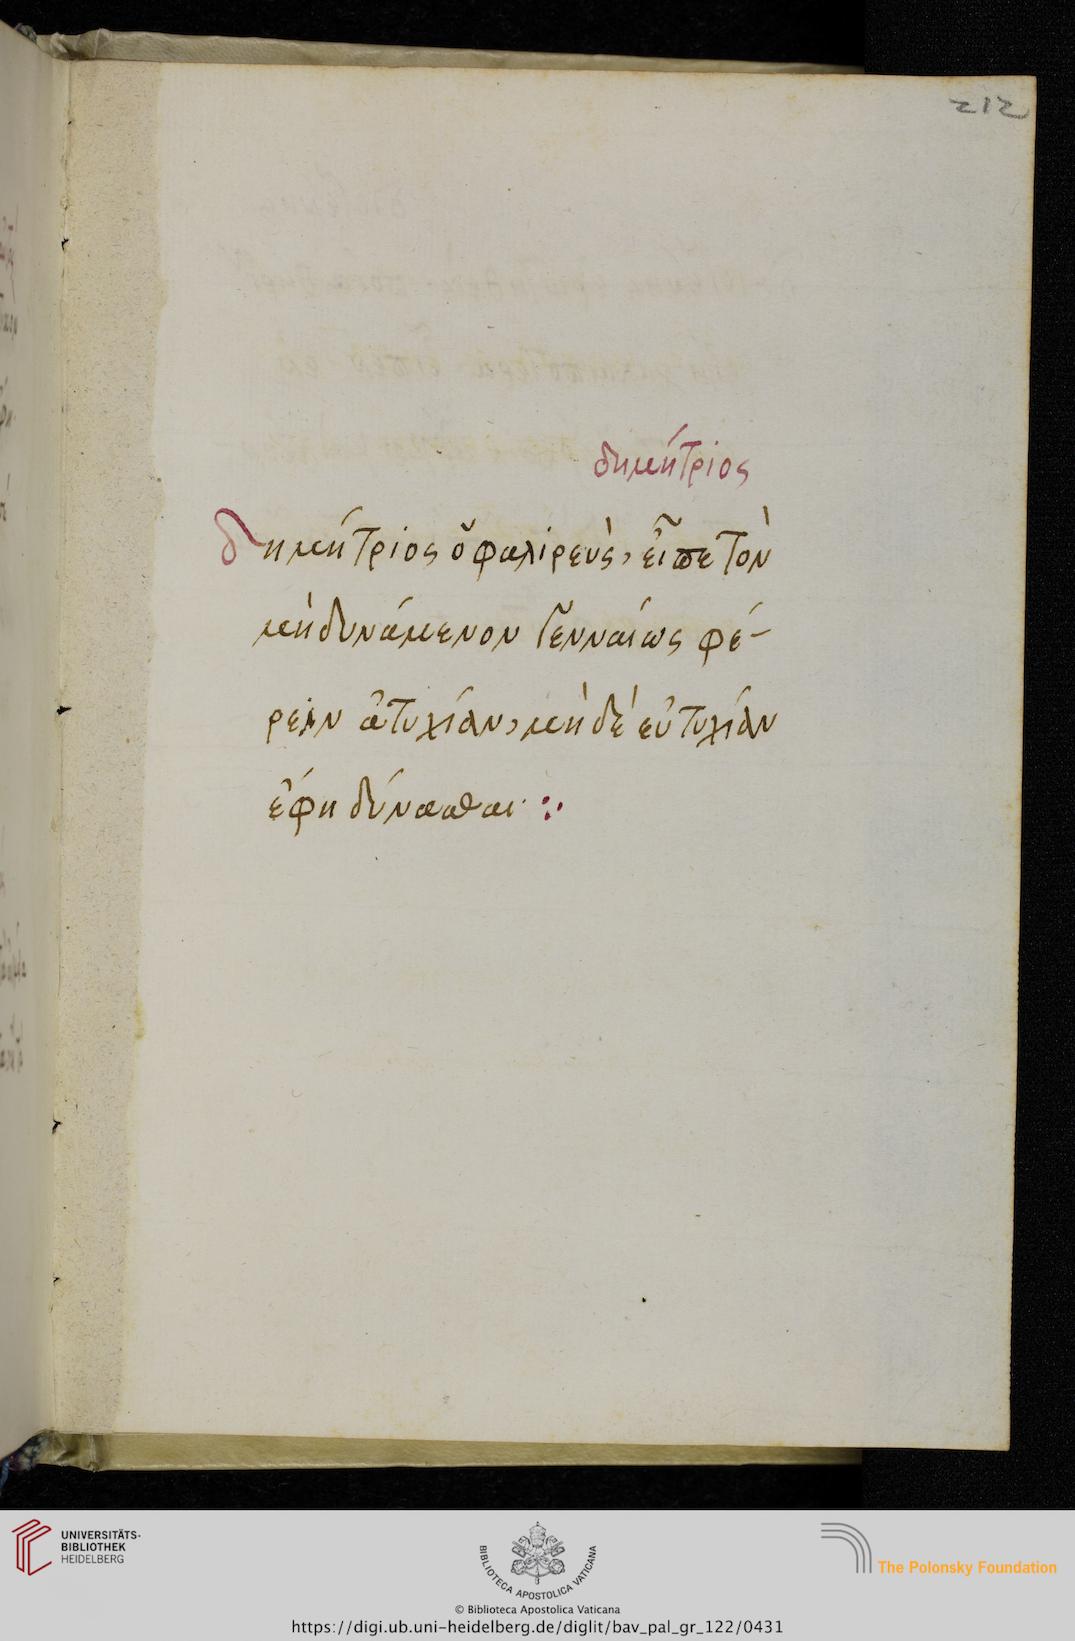 212
δημήτριος
δημήτριος ὁ φαλιρεὺς, εἶπε τὸν
μὴ δυνάμενον γενναίως φέ-
ρειν ἀτυχίαν, μὴ δὲ εὐτυχίαν
ἔφη δύνασθαι :·
UNIVERSITÄTS-
BIBLIOTHEK
HEIDELBERG
BIBLIOTECA APOSTOLICA VATICANA
The Polonsky Foundation
© Biblioteca Apostolica Vaticana
https://digi.ub.uni-heidelberg.de/diglit/bav_pal_gr_122/0431